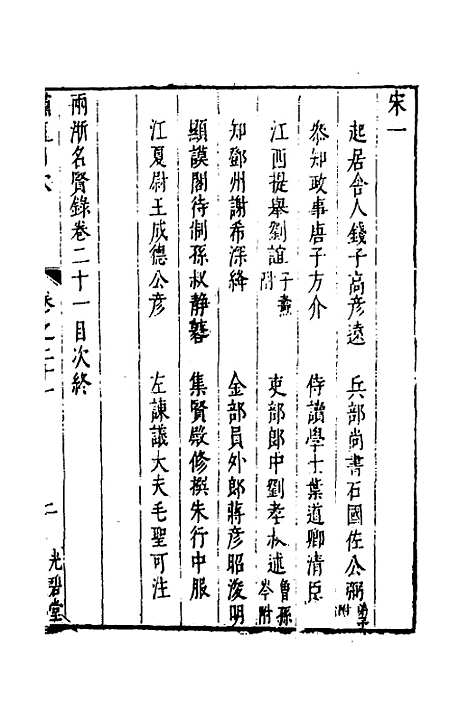 宋一
起居舍人錢子高彥遠
兵部尚書石國佐公弼
叅知政事唐子方介
侍讀學士葉道卿清臣
江西提舉劉誼
子燾附
吏部郎中劉孝叔述
曾孫岑附
知鄧州謝希深絳
金部員外郎蔣彥昭浚明
顯謨閣待制孫叔靜鼛
集賢殿修撰朱行中服
江夏尉王成德公彥
左諫議大夫毛聖可注
兩浙名賢錄卷二十一目次終
卷之二十一
二
光碧堂